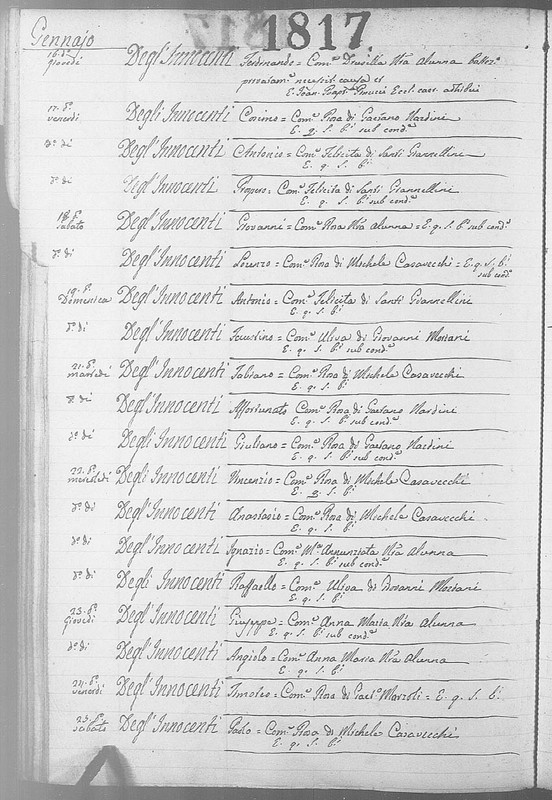 1817.
Gennajo
16. do Giovedi Degl'Innocenti Ferdinando = Come Drusilla Nra Alunna
necessit. causa et
17. do venerdi Degli Innocenti Cosimo = Come Rosa di Gaetano Nardini
E. q. S. bi sub conde
do di Degl'Innocenti Antonio = Come Felicita di Santi Giannellini
E. q. S. bi
do di Degl'Innocenti Prospero = Come Felicita di Santi Giannellini
E. q. S. bi sub conde
18. do Sabato Degl'Innocenti Giovanni = Come Rosa Nra Alunna = E. q. S. bi sub conde
do di Degl'Innocenti Lorenzo = Come Rosa di Michele Casavecchi = E. q. S. bi
sub conde
19. do Domenica Degl'Innocenti Antonio = Come Felicita di Santi Giannellini
E. q. S. bi
do di Degl'Innocenti Faustino = Come Uliva di Giovanni Moriani
E. q. S. bi sub conde
21. do martedi Degl'Innocenti Fabiano = Come Rosa di Michele Casavecchi
E. q. S. bi
do di Degl'Innocenti Affortunato Come Rosa di Gaetano Nardini
E. q. S. bi sub conde
do di Degli Innocenti Giuliano = Come Rosa di Gaetano Nardini
E. q. S. bi sub conde
22. do mercoledi Degli Innocenti Vincenzio = Come Rosa di Michele Casavecchi
E. q. S. bi
do di Degl'Innocenti Anastasio = Come Rosa di Michele Casavecchi
E. q. S. bi
do di Degl'Innocenti Ignazio = Come Ma Annunziata Nra Alunna
E. q. S. bi sub conde
do di Degli Innocenti Raffaello = Come Uliva di Giovanni Moriani
E. q. S. bi
23. do Giovedi Degl'Innocenti Giuseppe = Come Anna Maria Nra Alunna
E. q. S. bi sub conde
do di Degl'Innocenti Angiolo = Come Anna Maria Nra Alunna
E. q. S. bi
24. do venerdi Degl'Innocenti Timoteo = Come Rosa di Gaeto Marzoli = E. q. S. bi
25. do Sabato Degl'Innocenti Paolo = Come Rosa di Michele Casavecchi
E. q. S. bi